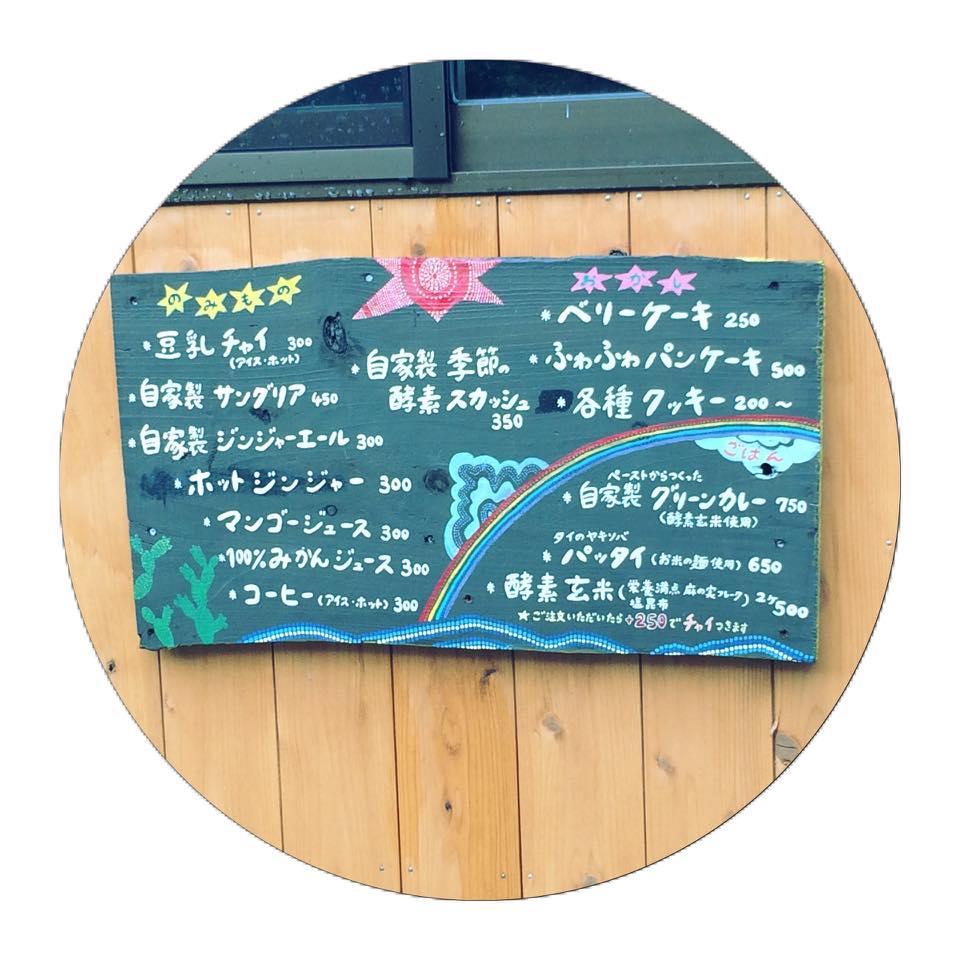 のみもの
* 豆乳 チャイ 300
(アイス・ホット)
* 自家製 サングリア 450
* 自家製 ジンジャーエール 300
* ホットジンジャー 300
* マンゴージュース 300
* 100%みかんジュース 300
* コーヒー(アイス・ホット) 300
* 自家製 季節の
酵素 スカッシュ
350
おかし
* ベリーケーキ 250
* ふわふわパンケーキ 500
* 各種 クッキー 200~
ごはん
ペーストからつくった
* 自家製 グリーンカレー 750
(酵素玄米使用)
タイのヤキソバ
* パッタイ (お米の麺使用) 650
* 酵素 玄米 (栄養満点 麻の実フレーク) 2ケ 500
塩昆布
★ご注文いただいたら +250で チャイつきます